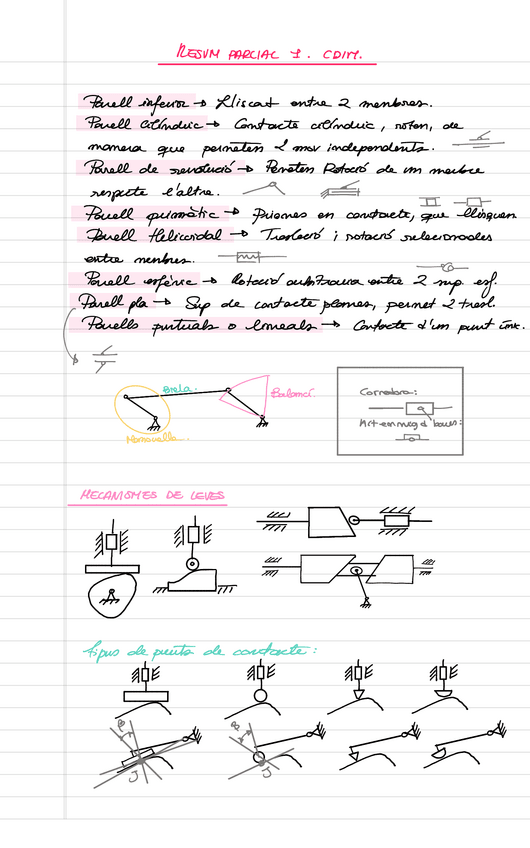 RESUM PARCIAL 1. CDIM.
Parell inferior → Lliscat entre 2 membres.
Parell Cilíndric → Contacte cilíndric, roten, de
manera que permeten 2 mov independents.
Parell de revolució → Permeten Rotació de un membre
respecte l'altre.
Parell prismàtic → Prismes en contacte, que llisquen
Parell Helicoidal → Traslació i rotació relacionades
entre membres.
Parell esfèric → Rotació entre 2 sup esf.
Parell pla → Sup de contacte planes, permet 2 trasl.
Parells puntuals o lineals → Contacte d'un punt únic.
Biela.
Balancí.
Manovella.
Corredora:
MECANISMES DE LEVES
Tipus de punts de contacte:
β
J
β
J